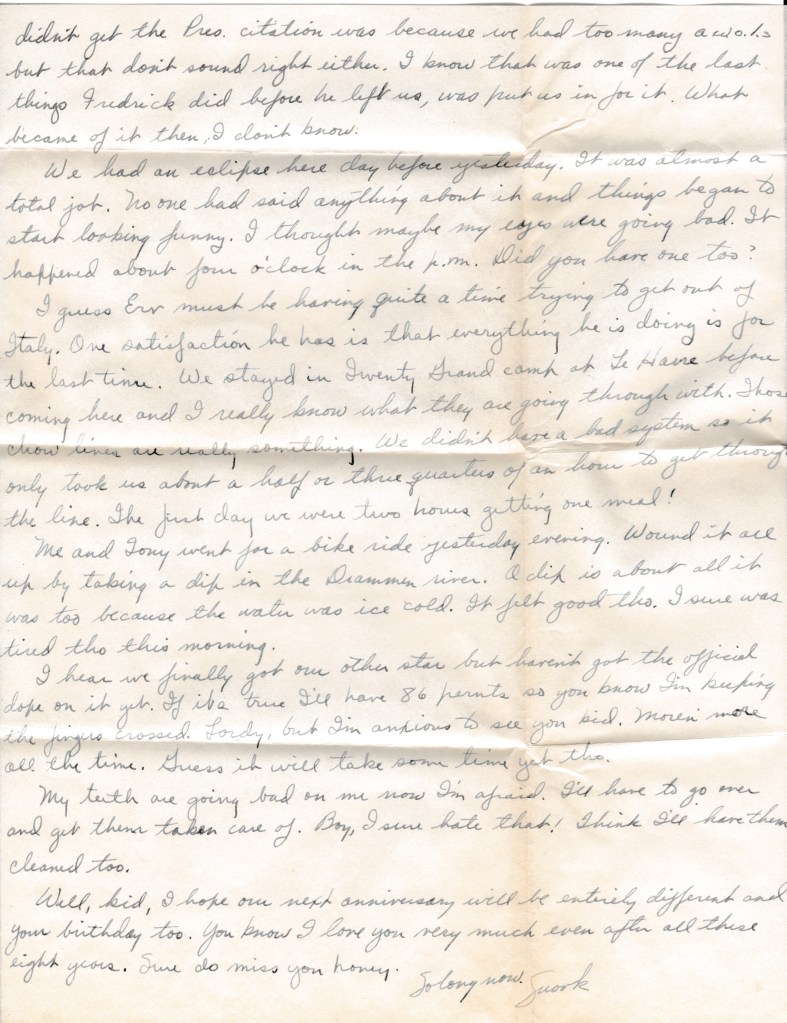 didn't get the Pres. citation was because we had too many a.w.o.l.s
but that don't sound right either. I know that was one of the last
things Fredrick did before he left us, was put us in for it. What
became of it then, I don't know.
We had an eclipse here day before yesterday. It was almost a
total job. No one had said anything about it and things began to
start looking funny. I thought maybe my eyes were going bad. It
happened about four o'clock in the p.m. Did you have one too?
I guess Erv must be having quite a time trying to get out of
Italy. One satisfaction he has is that everything he is doing is for
the last time. We stayed in Twenty Grand camp at Le Havre before
coming here and I really know what they are going through with. Those
chow lines are really something. We didn't have a bad system so it
only took us about a half or three quarters of an hour to get through
the line. The first day we were two hours getting one meal!
Me and Tony went for a bike ride yesterday evening. Wound it all
up by taking a dip in the Drammen river. A dip is about all it
was too because the water was ice cold. It felt good tho. I sure was
tired tho this morning.
I hear we finally got our other star but haven't got the official
dope on it yet. If it's true I'll have 86 points so you know I'm keeping
the fingers crossed. Lordy, but I'm anxious to see you kid. More'n more
all the time. Guess it will take some time yet tho.
My teeth are going bad on me now I'm afraid. I'll have to go over
and get them taken care of. Boy, I sure hate that! Think I'll have them
cleaned too.
Well, kid, I hope our next anniversary will be entirely different and
your birthday too. You know I love you very much even after all these
eight years. Sure do miss you honey.
So long now.